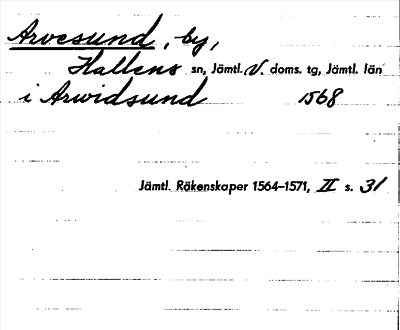 Arvesund, by,
Hallens sn, Jämtl. V. doms. tg, Jämtl. län
i Arwidsund 1568
Jämtl. Räkenskaper 1564–1571, II s. 31